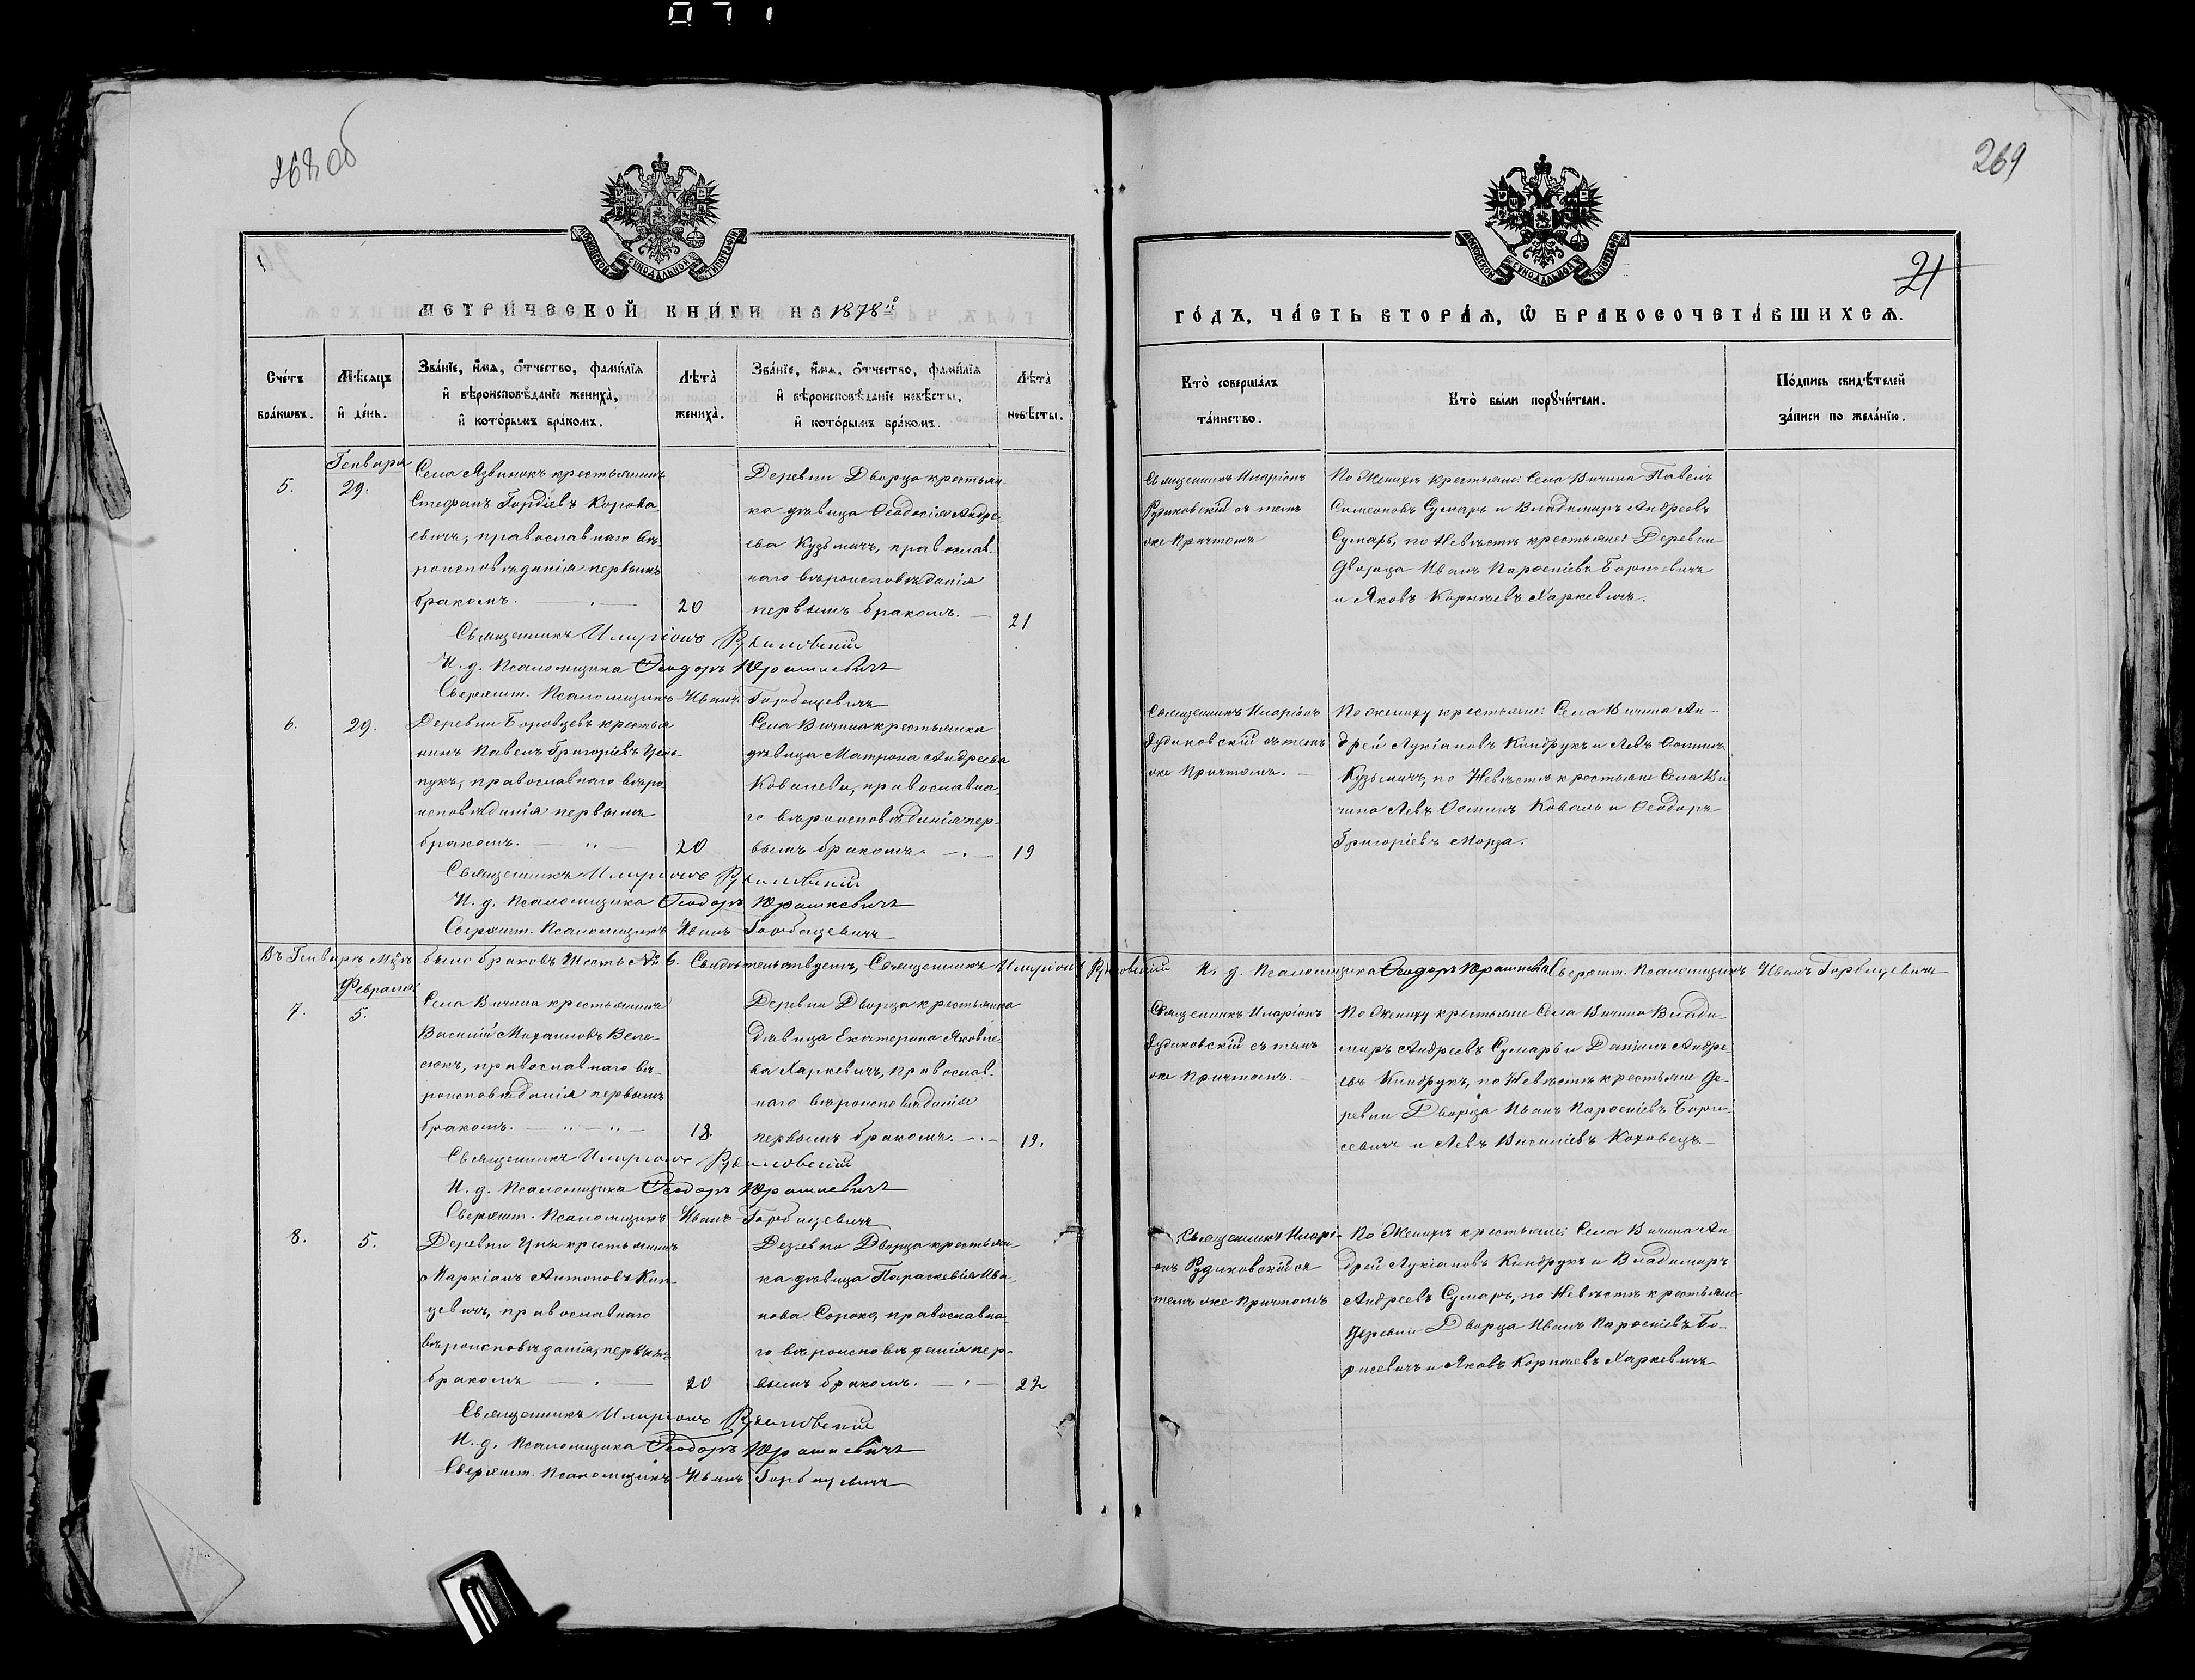 071
268 об
269
21
МОСКОВСКОЙ СУНОДАЛЬНОЙ ТИПОГРАФІИ
МОСКОВСКОЙ СУНОДАЛЬНОЙ ТИПОГРАФІИ
МЕТРИЧЕСКОЙ КНИГИ НА 1878й
ГОДЪ, ЧАСТЬ ВТОРАЯ, Ѡ БРАКОСОЧЕТАВШИХСЯ.
Счетъ браковъ.
Мѣсяцъ и день.
Званіе, имя, отчество, фамилія
и вѣроисповѣданіе жениха,
и которымъ бракомъ.
Лѣта жениха.
Званіе, имя, отчество, фамилія
и вѣроисповѣданіе невѣсты,
и которымъ бракомъ.
Лѣта невѣсты.
Кто совершалъ таинство.
Кто были поручители.
Подпись свидѣтелей
записи по желанію.
5.
Генваря
29.
Села Язвинокъ крестьянинъ
Стефанъ Гордіевъ Корова
евичъ, православнаго вѣ-
роисповѣданія первымъ
бракомъ.
20
Деревни Дворца крестьян-
ка дѣвица Ѳеодосія Андре-
ева Кузьмичъ, православ-
наго вѣроисповѣданія
первымъ бракомъ.
21
Священникъ Иларіонъ
Рудиковскій съ темъ
же Причтомъ
По Женихѣ крестьяне: Села Вичина Павелъ
Симеоновъ Сумаръ и Владимиръ Андреевъ
Сумаръ, по Невѣстѣ крестьяне: Деревни
Дворца Иванъ Пароеніевъ Борисевичъ
и Яковъ Корнѣевъ Харкевичъ.
Священникъ Иларіонъ Рудиковскій
И. д. Псаломщика Ѳеодоръ Юрашкевичъ
Сверхшт. Псаломщикъ Иванъ Горбацевичъ
6.
29.
Деревни Боровцевъ крестья
нинъ Павелъ Григоріевъ
пукъ, православнаго вѣро
исповѣданія первымъ
бракомъ.
20
Села Вичина крестьянка
дѣвица Матрона Андреева
Ковалева, православна-
го вѣроисповѣданія пер-
вымъ бракомъ.
19
Священникъ Иларіонъ
Рудиковскій съ темъ
же Причтомъ.
По жениху крестьяне: Села Вичина Ан-
дрей Лукіановъ Киндрукъ и Левъ Ѳоминъ
Кузьмичъ, по Невѣстѣ крестьяне Села Ви
чина Левъ Ѳоминъ Коваль и Ѳеодоръ
Григоріевъ Морза.
Священникъ Иларіонъ Рудиковскій
И. д. Псаломщика Ѳеодоръ Юрашкевичъ
Сверхшт. Псаломщикъ Иванъ Горбацевичъ
Въ Генварѣ Мцѣ было браковъ Шесть № 6. Свидѣтельствуетъ, Священникъ Иларіонъ Рудиковскій И. д. Псаломщика Ѳеодоръ Юрашкевичъ Сверхшт. Псаломщикъ Иванъ Горбацевичъ
7.
Февраля
5.
Села Вичина крестьянинъ
Василій Михаиловъ Веле-
сюкъ, православнаго вѣ-
роисповѣданія первымъ
бракомъ.
18
Деревни Дворца крестьянка
Дѣвица Екатерина Яковле-
ва Харкевичъ, Православ-
наго вѣроисповѣданія
первымъ бракомъ.
19.
Священникъ Иларіонъ
Рудиковскій съ темъ
же Причтомъ.
По Жениху крестьяне Села Вичина Влади-
миръ Андреевъ Сумаръ и Даніилъ Андре-
евъ Киндрукъ, по Невѣстѣ крестьяне Де-
ревни Дворца Иванъ Пароеніевъ Бори-
севичъ и Левъ Василіевъ Коховецъ
Священникъ Иларіонъ Рудиковскій
И. д. Псаломщика Ѳеодоръ Юрашкевичъ
Сверхшт. Псаломщикъ Иванъ Горбацевичъ
8.
5.
Деревни Цны крестьянинъ
Маркіанъ Антоновъ Кун-
цевичъ, православнаго
вѣроисповѣданія, первымъ
бракомъ
20
Деревни Дворца крестьян-
ка дѣвица Параскевія Ива-
нова Сороко, православна-
го вѣроисповѣданія пер-
вымъ бракомъ.
22
Священникъ Иларі-
онъ Рудиковскій съ
темъ же Причтомъ
По Женихѣ крестьяне: Села Вичина Ан
дрей Лукіановъ Киндрукъ и Владимиръ
Андреевъ Сумаръ, по Невѣстѣ крестьяне
Деревни Дворца Иванъ Пароеніевъ Бо-
рисевичъ и Яковъ Корнѣевъ Харкевичъ
Священникъ Иларіонъ Рудиковскій
И. д. Псаломщика Ѳеодоръ Юрашкевичъ
Сверхшт. Псаломщикъ Иванъ Горбацевичъ